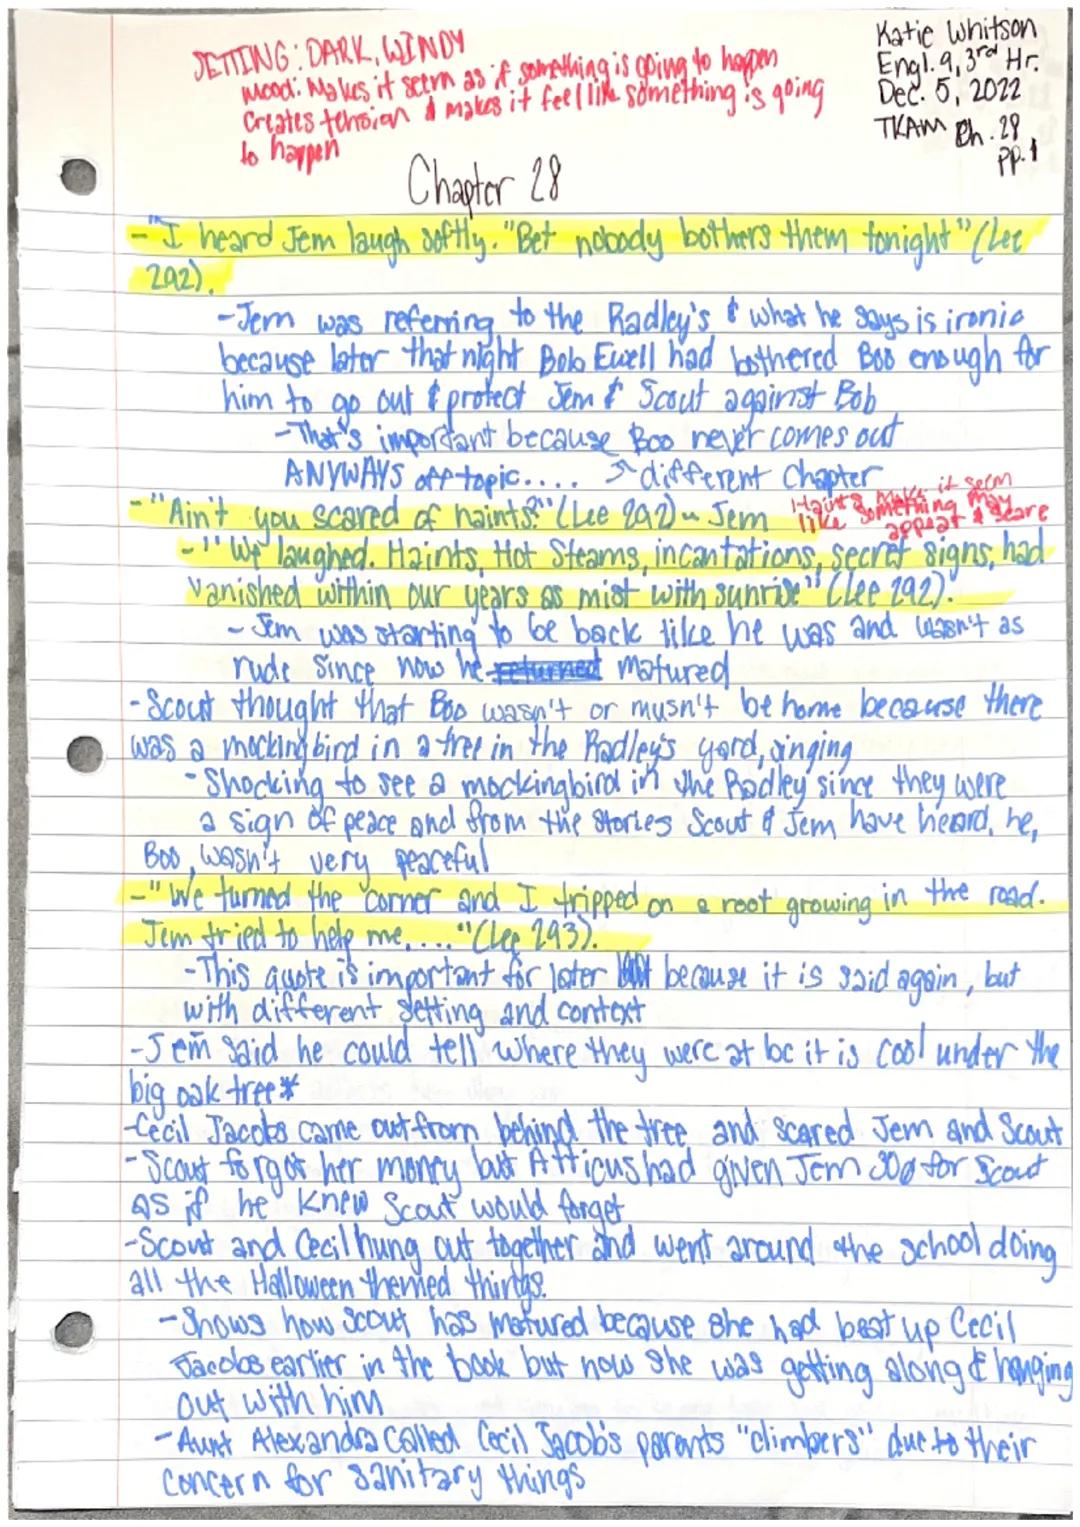 SETTING: DARK, WINDY
Mood: Makes it seem as if something is going to happen
Creates tension & makes it feel like something is going
to happen
Katie Whitson
Engl. 9, 3rd Hr.
Dec. 5, 2022
TKAM Ch. 28
pp. 1
Chapter 28
-"I heard Jem laugh softly. "Bet nobody bothers them tonight" (Lee
292).
-Jem was referring to the Radley's & what he says is ironic
because later that night Bob Ewell had bothered Boo enough for
him to go out & protect Jem & Scout against Bob
-That's important because Boo never comes out
ANYWAYS off topic.... different Chapter
-"Ain't you scared of haints?" (Lee 292) ~ Jem
Haints makes it seem
like something may
appear & scare
-"We laughed. Haints, Hot Steams, incantations, secret signs, had
vanished within our years as mist with sunrise" (Lee 292).
- Jem was starting to be back like he was and wasn't as
rude since now he returned matured
-Scout thought that Boo wasn't or musn't be home because there
was a mockingbird in a tree in the Radley's yard, singing
-Shocking to see a mockingbird in the Radley since they were
a sign of peace and from the stories Scout & Jem have heard, he,
Boo, wasn't very peaceful
-"We turned the corner and I tripped on a root growing in the road.
Jem tried to help me,...."(Lee 293).
-This quote is important for later because it is said again, but
with different setting and context
-Jem said he could tell where they were at bc it is cool under the
big oak tree*
-Cecil Jacobs came out from behind the tree and scared Jem and Scout
-Scout forgot her money but Atticus had given Jem 30¢ for Scout
as if he knew Scout would forget
-Scout and Cecil hung out together and went around the school doing
all the Halloween themed things.
-Shows how Scout has matured because she had beat up Cecil
Jacobs earlier in the book but now she was getting along & hanging
out with him
-Aunt Alexandra called Cecil Jacob's parents "climbers" due to their
concern for sanitary things